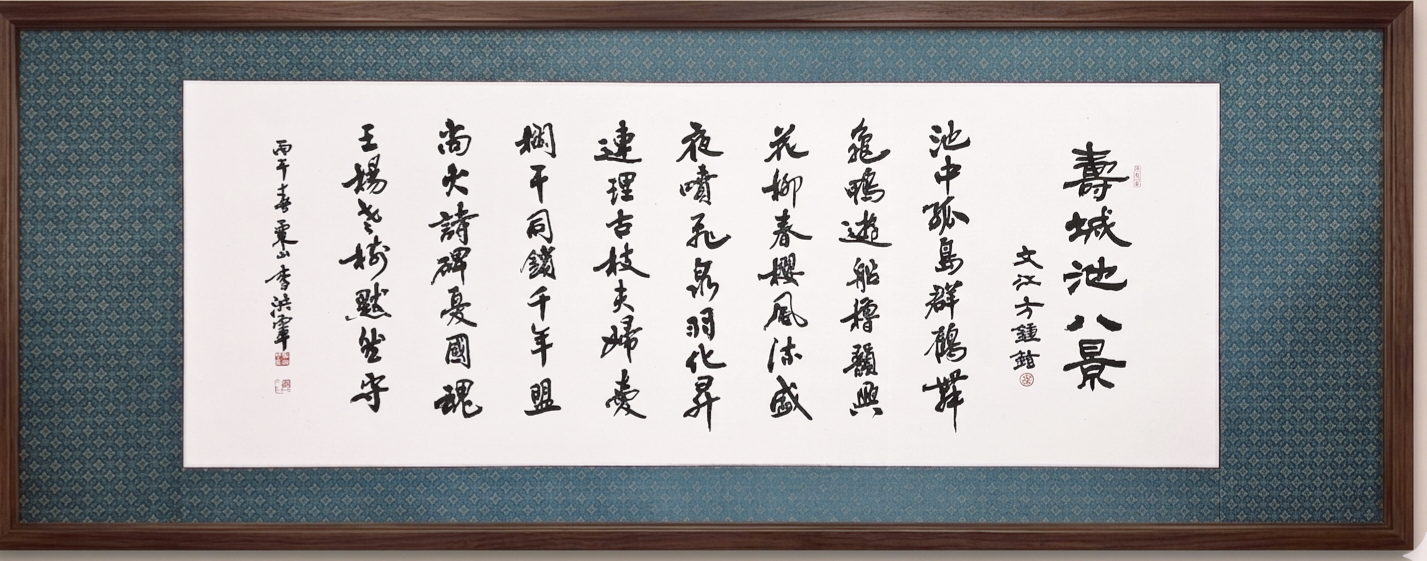 壽城池八景
文江方鍾鉉
池中孤島群鶴舞
龜鴨遊船櫓韻興
花柳春櫻風流盛
夜噴飛泉羽化昇
連理古枝夫婦愛
欄干同鎖千年盟
尚火詩碑憂國魂
王楊老樹默然守
丙午春栗山李洪宰